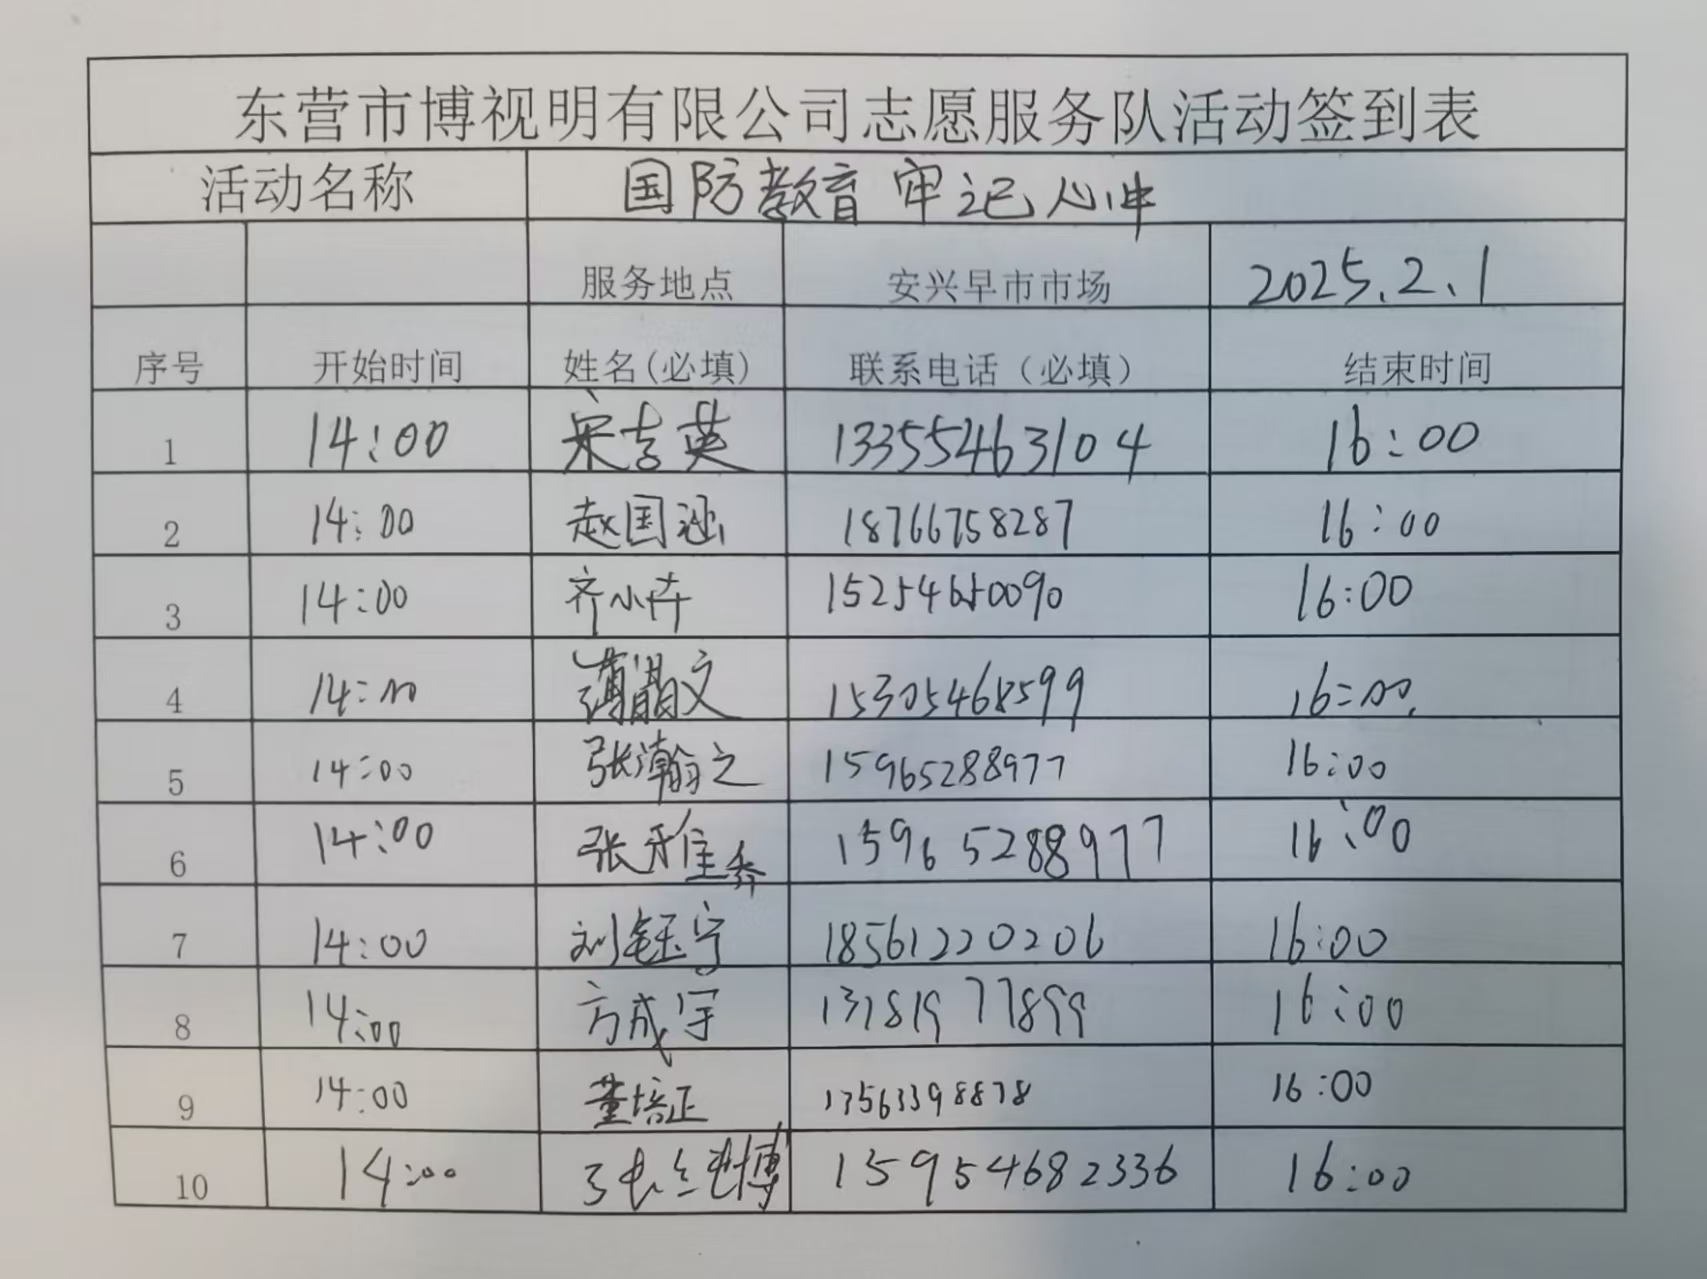 东营市博视明有限公司志愿服务队活动签到表
活动名称 国防教育 牢记心中
服务地点 安兴早市市场 2025.2.1
序号 开始时间 姓名(必填) 联系电话（必填） 结束时间
1 14:00 宋吉英 13355463104 16:00
2 14:00 赵国涵 18766758287 16:00
3 14:00 齐小卉 15254650090 16:00
4 14:00 蒲晶文 15305468599 16:00
5 14:00 张瀚之 15965288977 16:00
6 14:00 张雅乔 15965288977 16:00
7 14:00 刘钰宁 18561220206 16:00
8 14:00 方成宇 13181977899 16:00
9 14:00 董培正 13563398878 16:00
10 14:00 159954682336 16:00